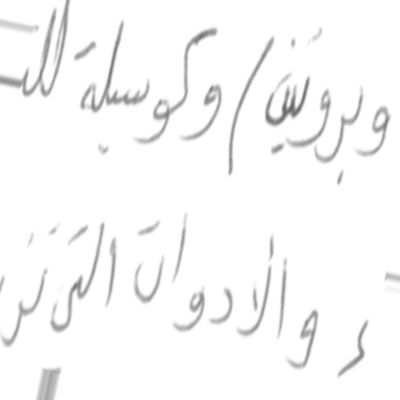 وبروتين) وكوسيلة لل
ء والأدوات التي تتر